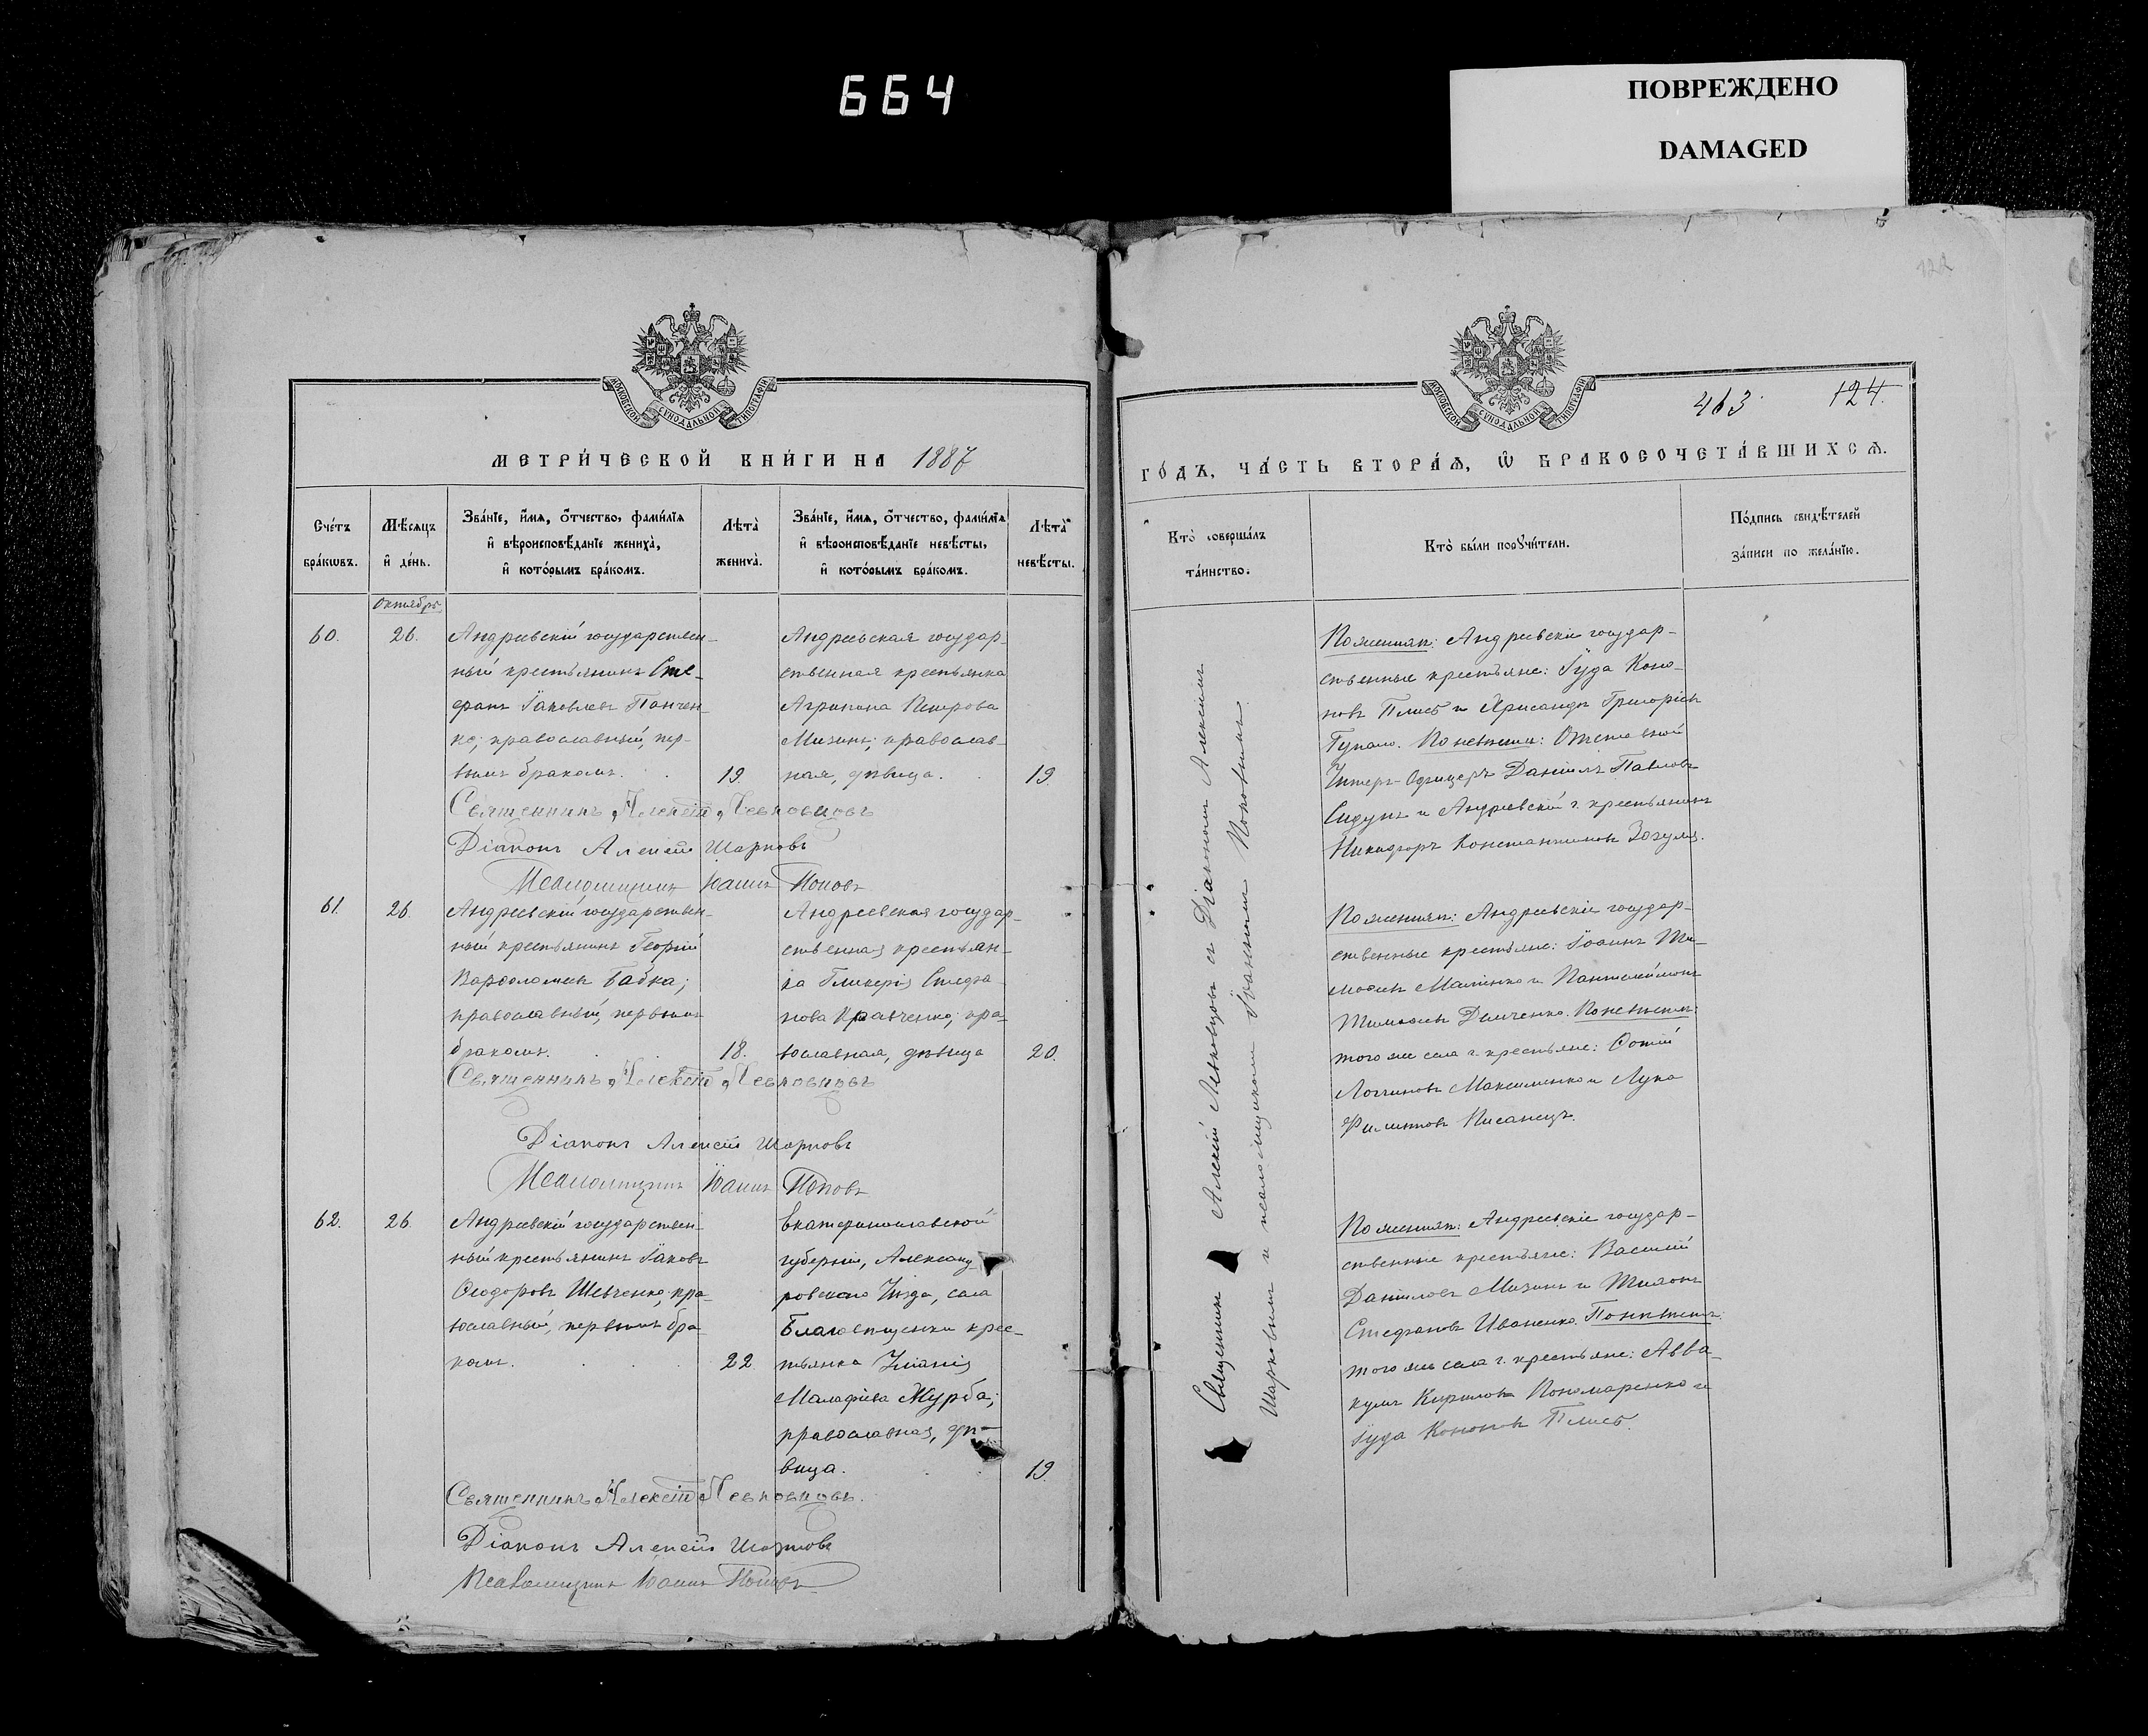 664
ПОВРЕЖДЕНО
DAMAGED
122
МОСКОВСКОЙ СѴНОДАЛЬНОЙ ТИПОГРАФІИ
МЕТРИ́ЧЕСКОЙ КНИ́ГИ НА 1887
Сче́тъ бра́кѡвъ.
Мѣ́сяцъ и҆ де́нь.
Зва́нїе, и҆́мѧ, ѻ҆́тчество, фами́лїѧ
и҆ вѣроисповѣ́данїе жениха̀,
и҆ кото́рымъ бра́комъ.
Лѣта̀ жениха̀.
Зва́нїе, и҆́мѧ, ѻ҆́тчество, фами́лїѧ
и҆ вѣроисповѣ́данїе невѣ́сты,
и҆ кото́рымъ бра́комъ.
Лѣта̀ невѣ́сты.
Октябрь
60.
26.
Андреевскій государствен-
ный крестьянинъ Сте-
фанъ Іаковлевъ Панчен-
ко; православный, пер-
вымъ бракомъ.
19.
Андреевская государ-
ственная крестьянка
Агрипина Петрова
Мизинъ; православ-
ная, дѣвица.
19.
Священникъ Алексій Левковцовъ
Діаконъ Алексій Шарковъ
Псаломщикъ Іоаннъ Поповъ
61.
26.
Андреевскій государствен-
ный крестьянинъ Георгій
Варѳоломеевъ Бабка;
православный, первымъ
бракомъ.
18.
Андреевская государ-
ственная крестьян-
ка Гликерія Стефа-
нова Кравченко; пра-
вославная, дѣвица
20.
Священникъ Алексій Левковцовъ
Діаконъ Алексій Шарковъ
Псаломщикъ Іоаннъ Поповъ
62.
26.
Андреевскій государствен-
ный крестьянинъ Іаковъ
Ѳеодоровъ Шевченко; пра-
вославный, первымъ бра-
комъ.
22
Екатеринославской
губерніи, Александ-
ровскаго Уѣзда, села
Благовѣщенки крес-
тьянка Уліанія
Малафіева Журба;
православная, дѣ-
вица.
19.
Священникъ Алексій Левковцовъ.
Діаконъ Алексій Шарковъ
Псаломщикъ Іоаннъ Поповъ
МОСКОВСКОЙ СѴНОДАЛЬНОЙ ТИПОГРАФІИ
463
124.
ГО́ДЪ, ЧА́СТЬ ВТОРА́Ѧ, Ѡ҆ БРАКОСОЧЕТА́ВШИХСѦ.
Кто̀ соверша́лъ
та́инство.
Кто̀ бы́ли порꙋчи́тели.
По́дпись свидѣ́телей
за́писи по жела́нїю.
Священникъ Алексій Левковцовъ съ Діакономъ Алексіемъ
Шарковымъ и псаломщикомъ Іоанномъ Поповымъ.
По женихѣ: Андреевскіе государ-
ственные крестьяне: Іуда Коно-
новъ Плисъ и Хрисанфъ Григоріевъ
Гупало. По невѣстѣ: Отставной
Унтеръ-Офицеръ Даніилъ Павловъ
Сидунъ и Андреевскій г. крестьянинъ
Никифоръ Константиновъ Зозуля.
По женихѣ: Андреевскіе государ-
ственные крестьяне: Іоаннъ Ти-
моѳеевъ Матенко и Пантелеймонъ
Тимоѳеевъ Демченко. По невѣстѣ:
того же села г. крестьяне: Фотій
Логгиновъ Максименко и Лука
Филиповъ Писанецъ.
По женихѣ: Андреевскіе государ-
ственные крестьяне: Василій
Даніиловъ Мизинъ и Тихонъ
Стефановъ Иваненко. По невѣстѣ:
того же села г. крестьяне: Авва-
кумъ Кириловъ Пономаренко и
Іуда Кононовъ Плисъ.